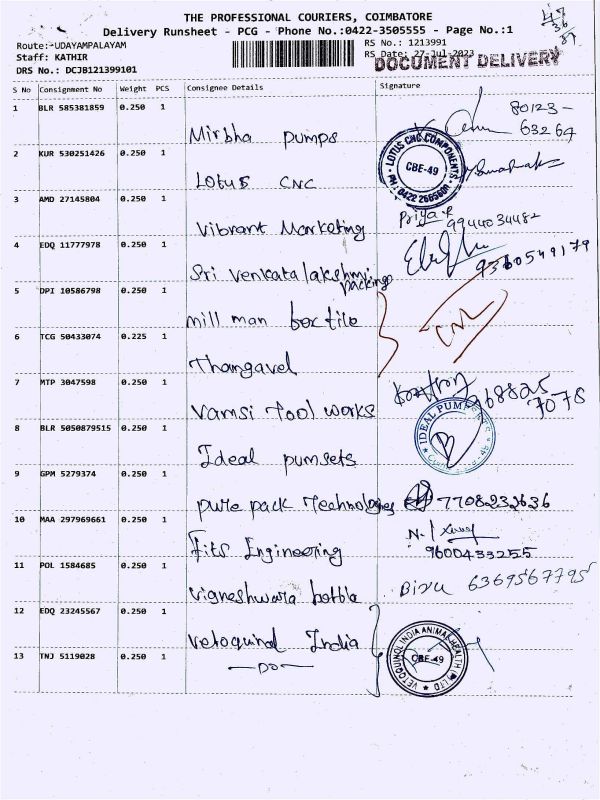 THE PROFESSIONAL COURIERS, COIMBATORE
Delivery Runsheet - PCG - Phone No.:0422-3505555 - Page No.:1
Route:-UDAYAMPALAYAM
RS No.: 1213991
Staff: KATHIR
RS Date: 27-Jul-2023
DRS No.: DCJB121399101
DOCUMENT DELIVERY
S No Consignment No Weight PCS Consignee Details Signature
1 BLR 585381859 0.250 1 Mirbha pumps 80123-
63264
2 KUR 530251426 0.250 1 Lotus CNC
LOTUS CNC COMPONENTS
CBE-49
3 AMD 27145804 0.250 1 Vibrant Marketing Priya.R
9944034482
4 EDQ 11777978 0.250 1 Sri Venkatalakshmi
packings
9360549179
5 DPI 10586798 0.250 1 mill man textile
6 TCG 50433074 0.225 1 Thangavel
7 MTP 3047598 0.250 1 Vamsi Tool works 968825
7078
8 BLR 5050879515 0.250 1 Ideal pumsets
IDEAL PUMP
9 GPM 5279374 0.250 1 pure pack Technologies 7708232636
10 MAA 297969661 0.250 1 Fits Engineering
9600433255
11 POL 1584685 0.250 1 Vigneshwara bottle 6369567795
12 EDQ 23245567 0.250 1 Vetoquinol India
VETOQUINOL INDIA ANIMAL HEALTH (P) LTD
CBE-49
13 TNJ 5119028 0.250 1 —DO—